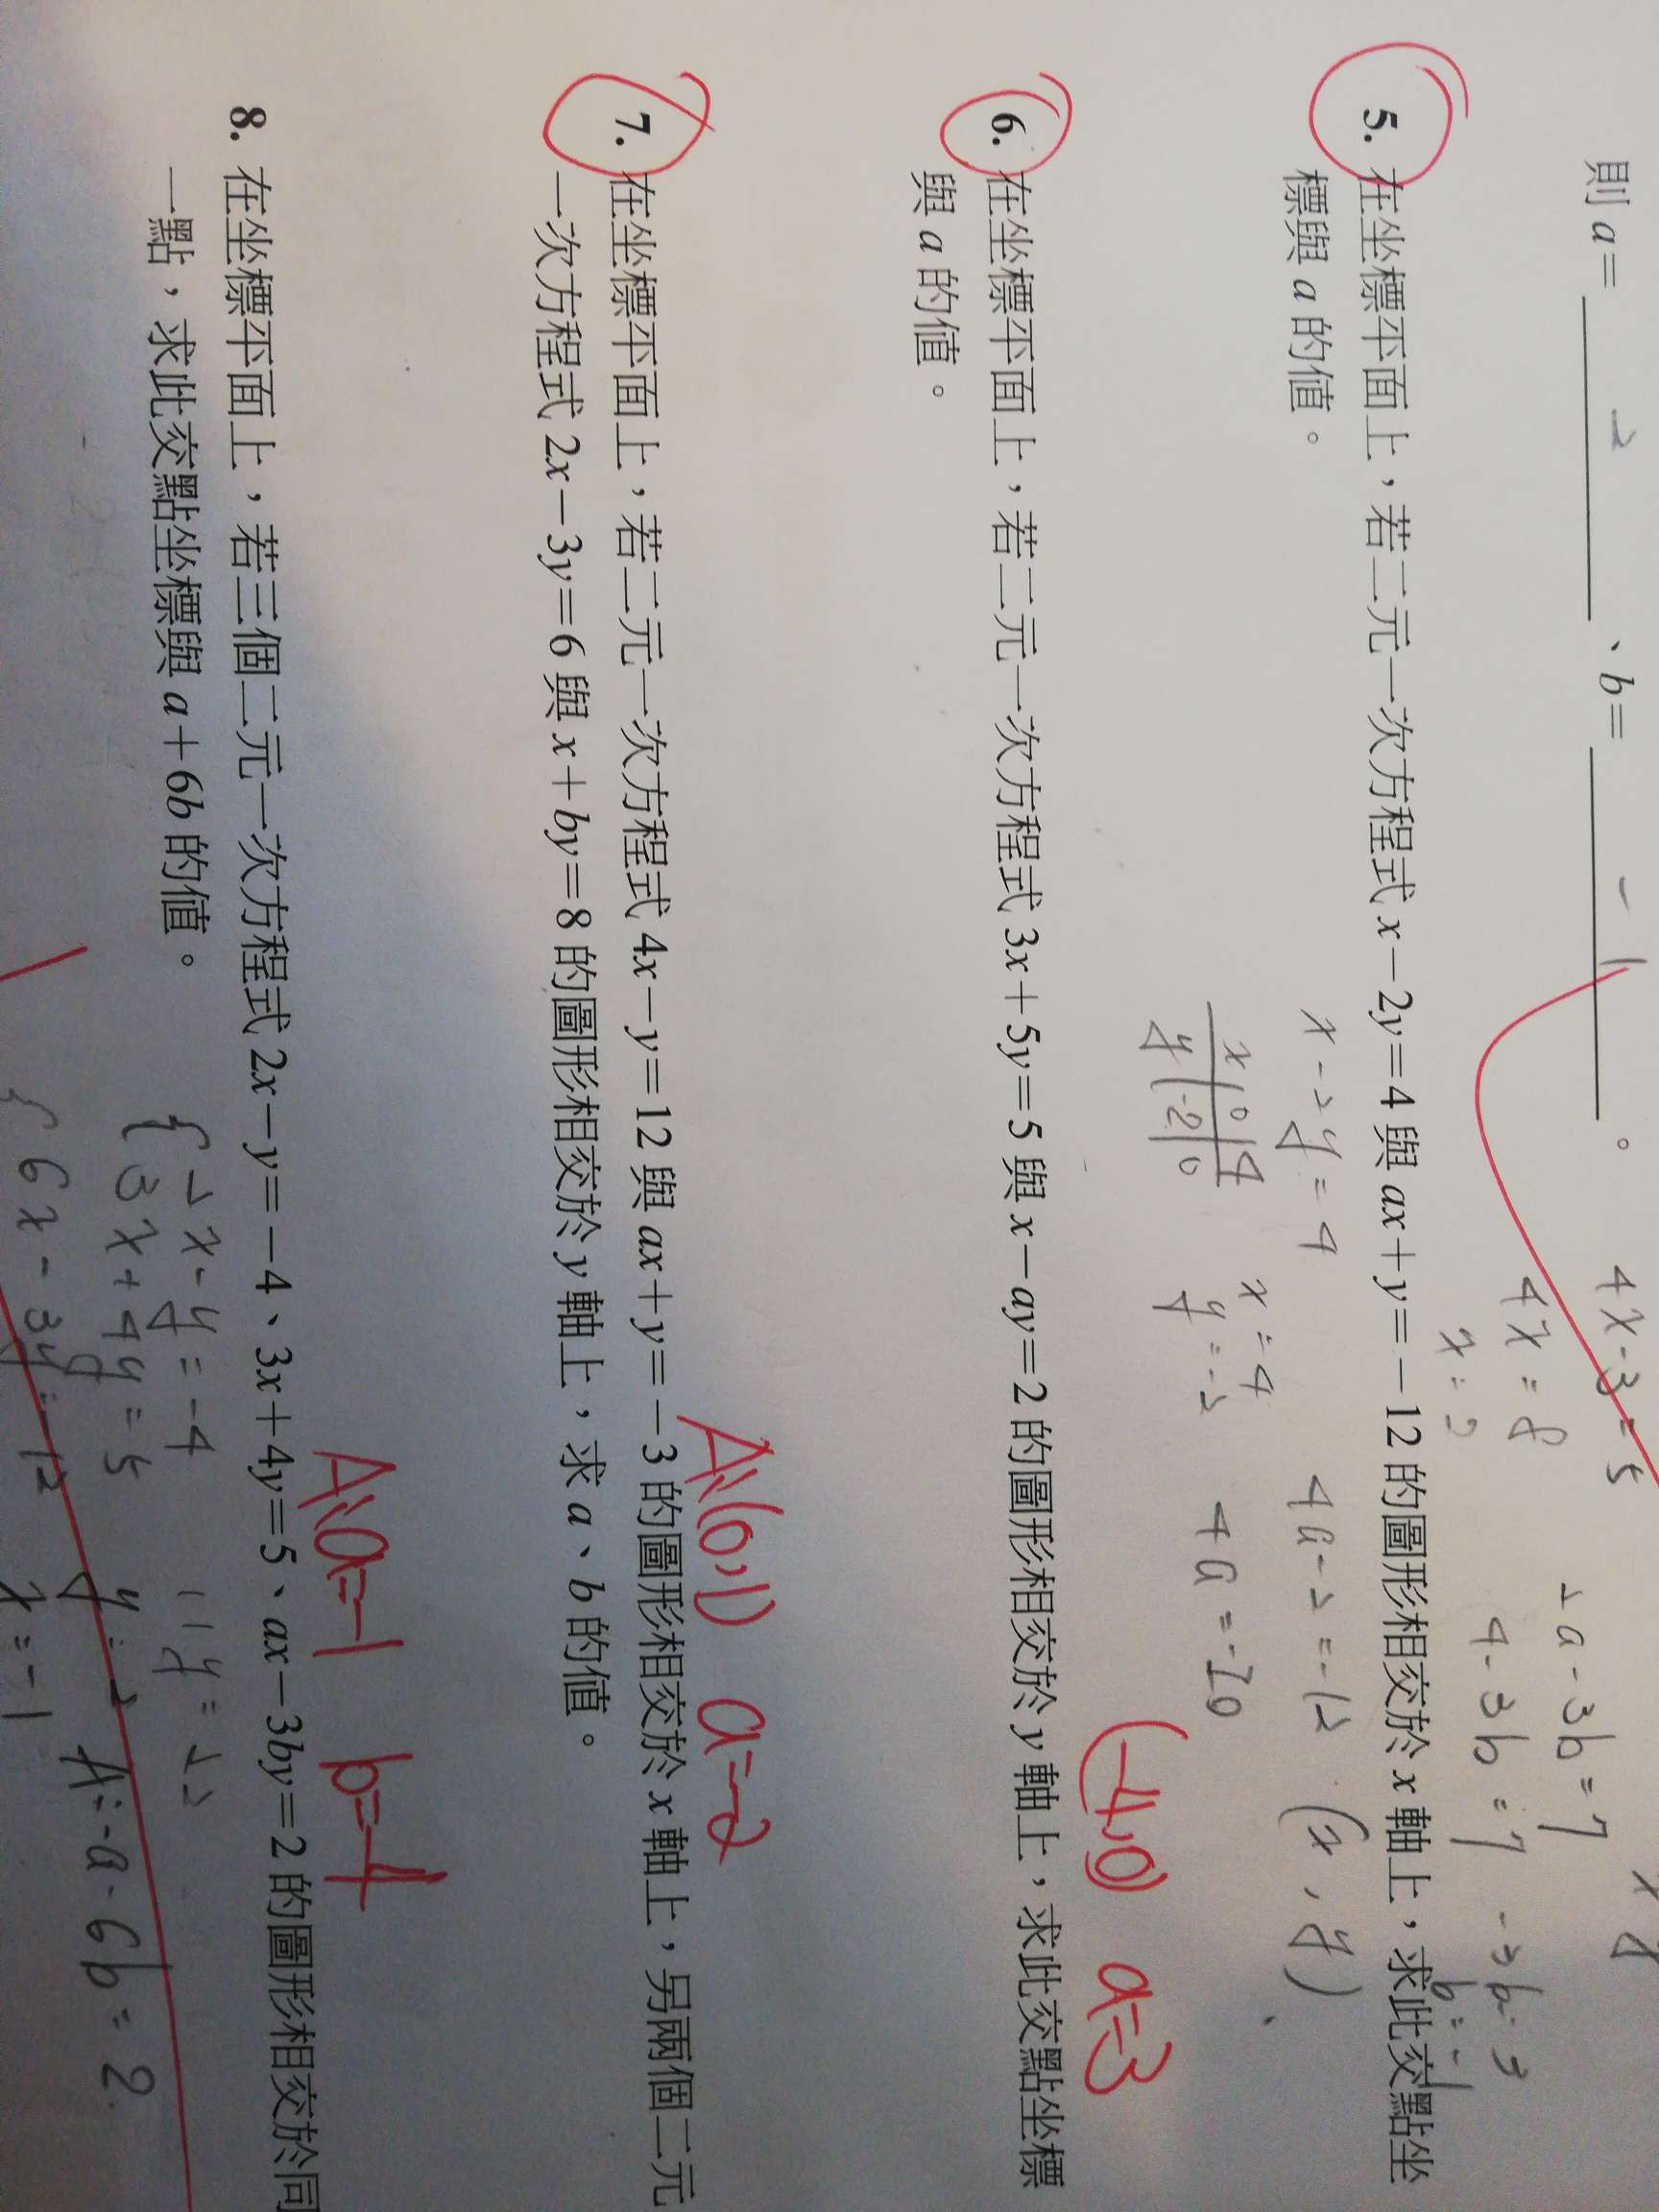 則 a= 2 、b= -1 。
4x-3=5
4x=8
x=2
2a-3b=7
4-3b=7
-3b=3
b=-1
5. 在坐標平面上，若二元一次方程式 x－2y=4 與 ax+y=－12 的圖形相交於 x 軸上，求此交點坐
標與 a 的值。
x-2y=4
x 0 4
y -2 0
x=4
y=-2
4a-2=-12
4a=-20
(x,y)
(4,0) a=-3
6. 在坐標平面上，若二元一次方程式 3x+5y=5 與 x－ay=2 的圖形相交於 y 軸上，求此交點坐標
與 a 的值。
A:(0,1) a=-2
7. 在坐標平面上，若二元一次方程式 4x－y=12 與 ax+y=－3 的圖形相交於 x 軸上，另兩個二元
一次方程式 2x－3y=6 與 x+by=8 的圖形相交於 y 軸上，求 a、b 的值。
A:a=-1 b=-4
8. 在坐標平面上，若三個二元一次方程式 2x－y=－4、3x+4y=5、ax－3by=2 的圖形相交於同
一點，求此交點坐標與 a+6b 的值。
2x-y=-4
3x+4y=5
6x-3y=-12
11y=22
y=2
x=-1
A:-a-6b=2